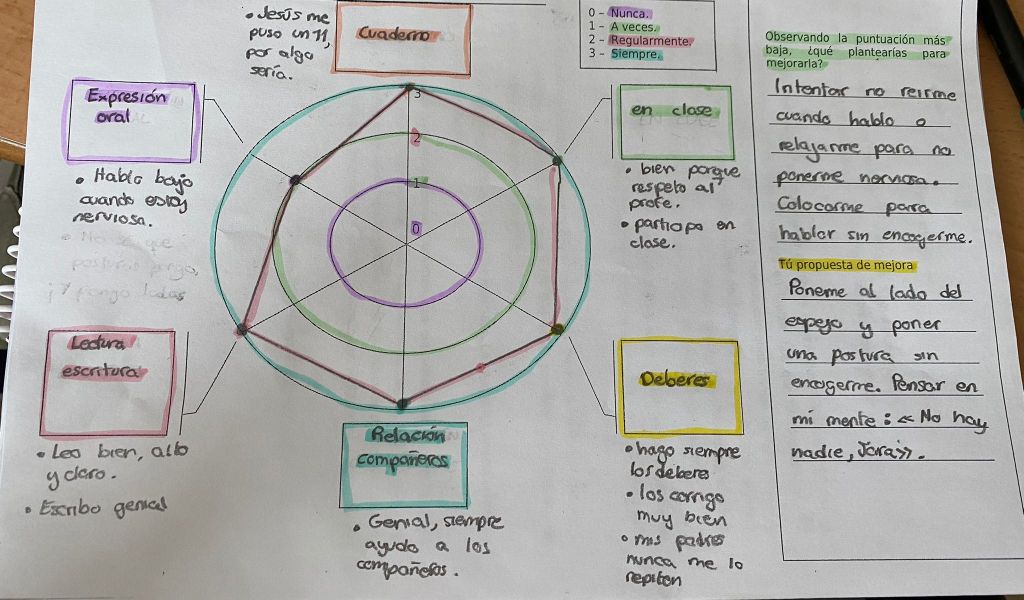 • Jesús me
puso un 11,
por algo
sería.
Cuaderno
0 - Nunca.
1 - A veces.
2 - Regularmente.
3 - Siempre.
Expresión
oral
• Hablo bajo
cuando estoy
nerviosa.
• No sé qué
posturas pongo,
y pongo todas
en clase
• bien porque
respeto al
profe.
• participo en
clase.
3
2
1
0
Lectura
escritura
• Leo bien, alto
y claro.
• Escribo genial
Relación
compañeros
• Genial, siempre
ayudo a los
compañeros.
Deberes
• hago siempre
los deberes
• los corrigo
muy bien
• mis padres
nunca me lo
repiten
Observando la puntuación más
baja, ¿qué plantearías para
mejorarla?
Intentar no reirme
cuando hablo o
relajarme para no
ponerme nerviosa.
Colocarme para
hablar sin encogerme.
Tú propuesta de mejora
Poneme al lado del
espejo y poner
una postura sin
encogerme. Pensar en
mi mente: «No hay
nadie, Jara».